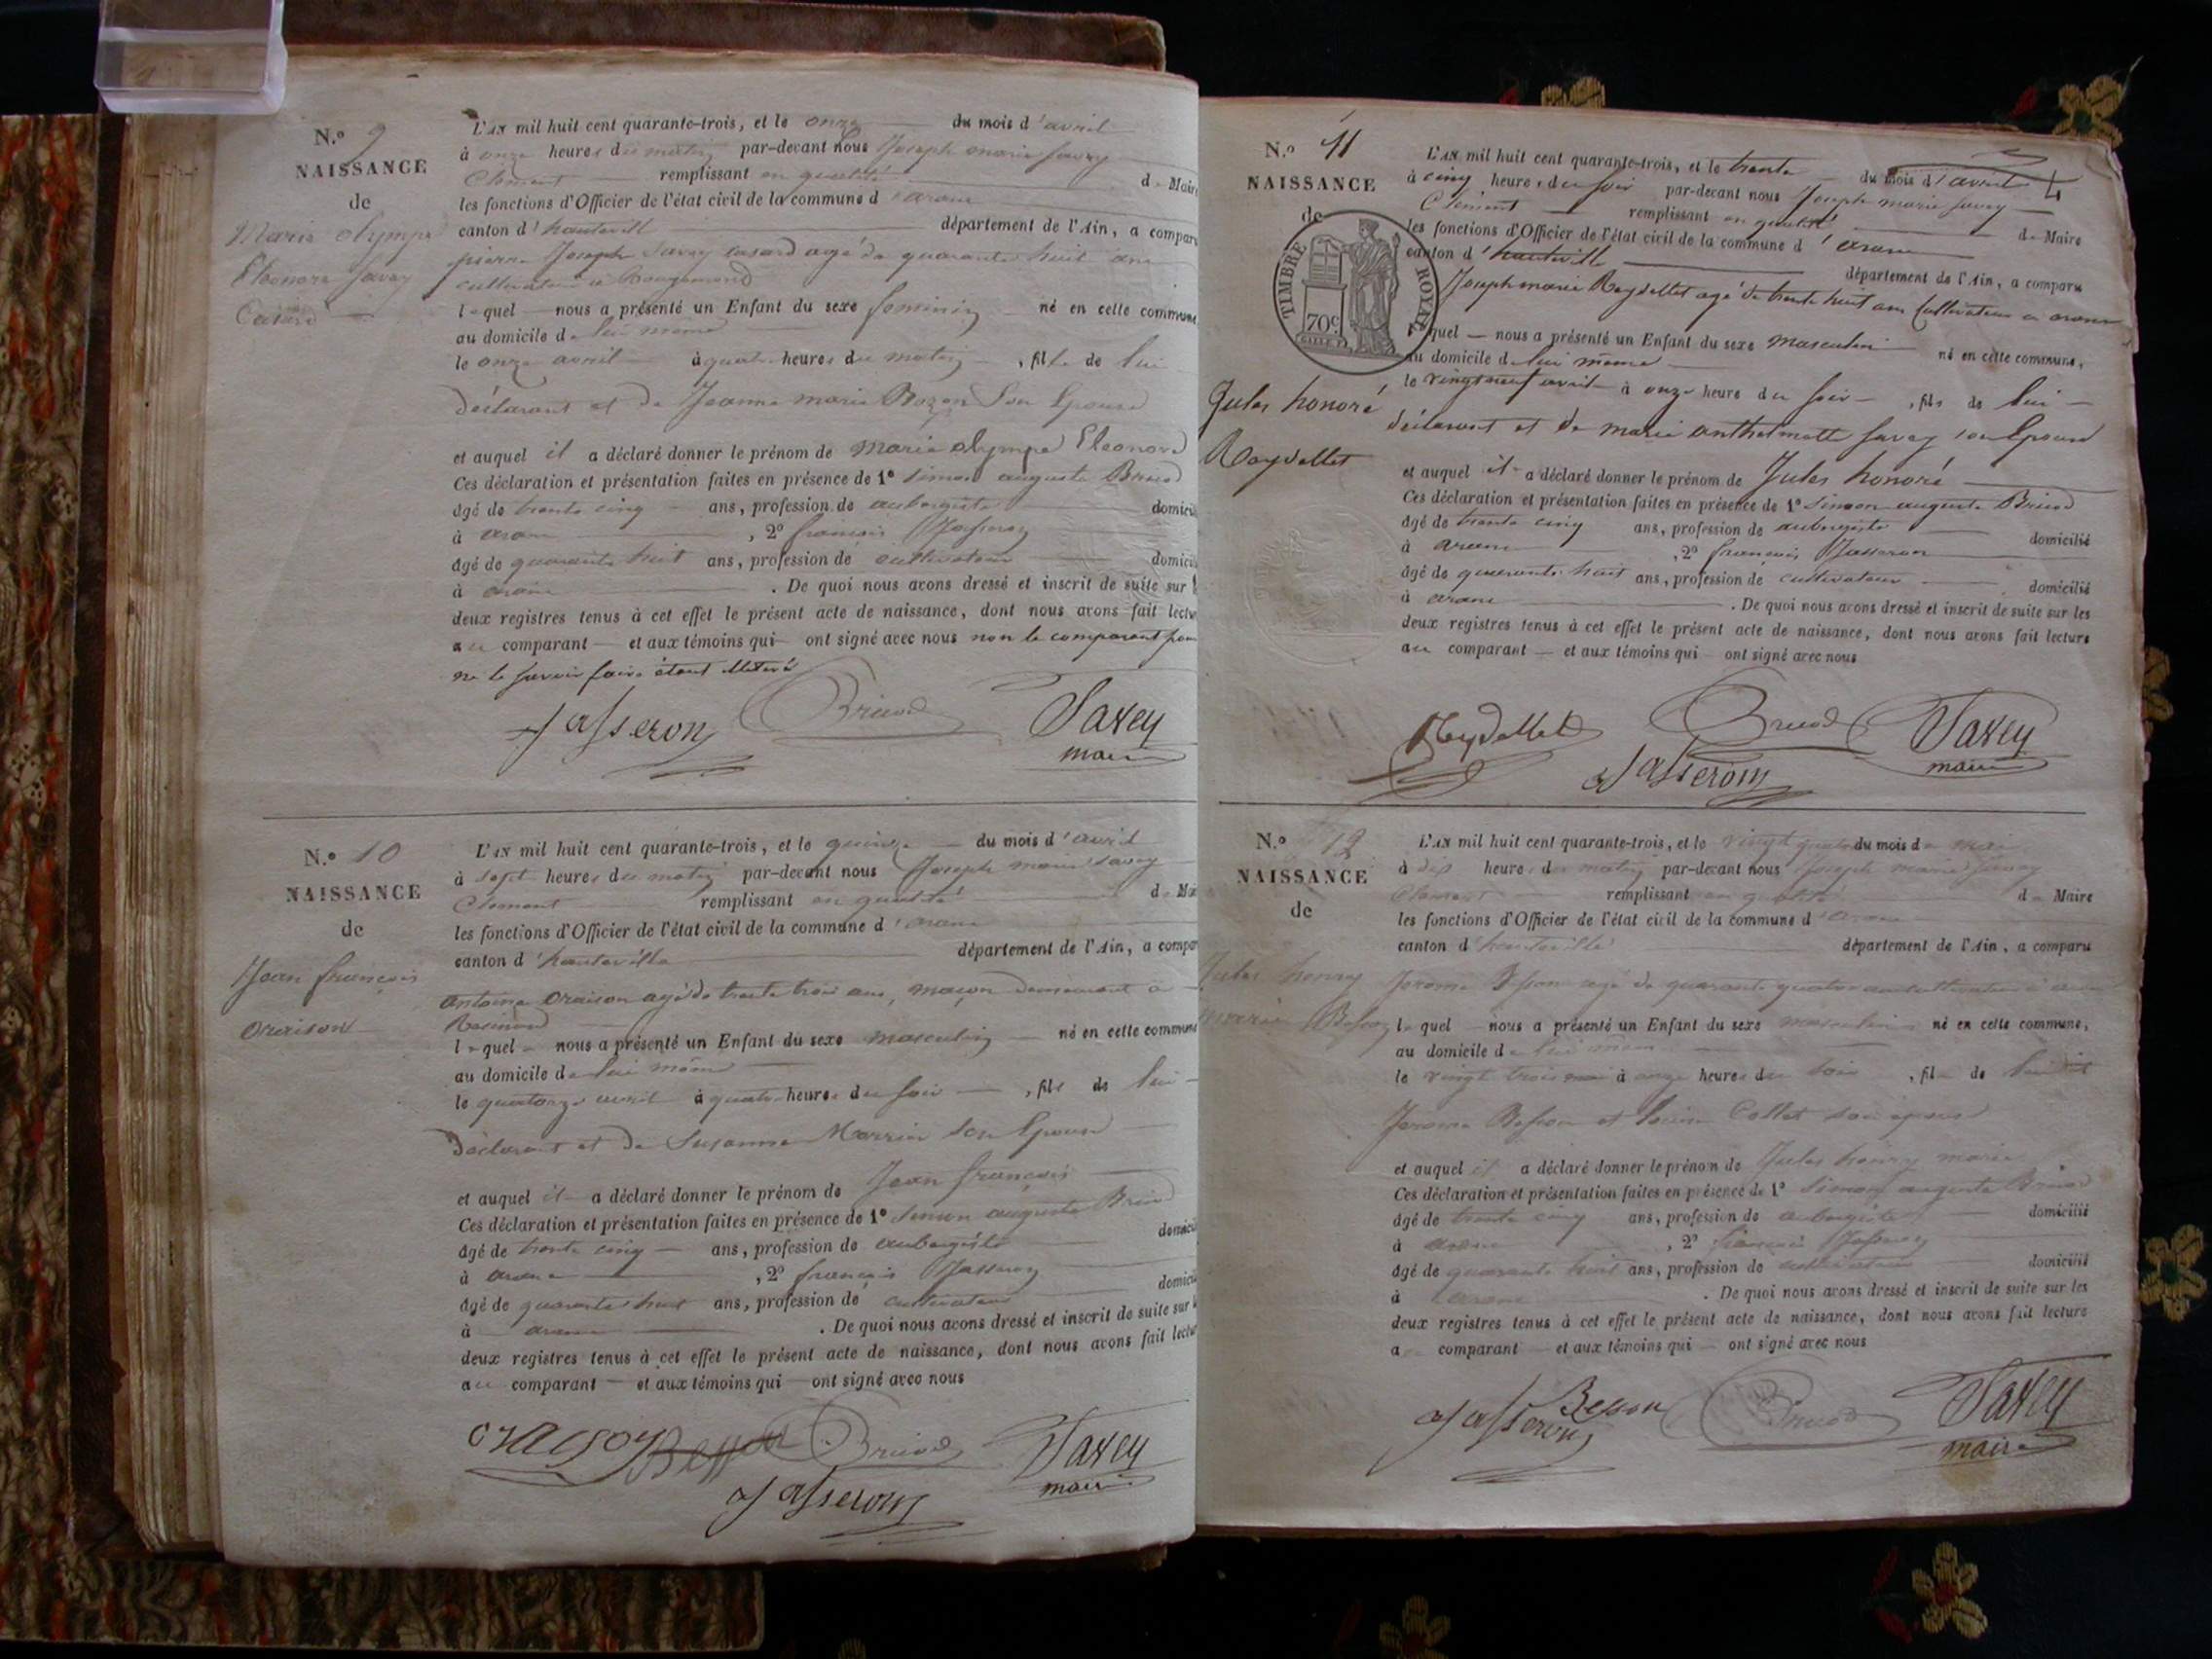 N.o 9
NAISSANCE
de
Marie olympe
Eleonore Savey
Casard
L'AN mil huit cent quarante-trois, et le onze du mois d'avril
à onze heures du matin par-devant nous Joseph marie Savey
Clement remplissant en qualité de Maire
les fonctions d'Officier de l'état civil de la commune d'arane
canton d'hauteville département de l'Ain, a compar
pierre Joseph Savey casard agé de quarante huit ans
cultivateur à Rougemond
lequel nous a présenté un Enfant du sexe feminin né en cette commune
au domicile de lui meme
le onze avril à quatre heures du matin, fille de lui
déclarant et de Jeanne marie Son Epouse
et auquel il a déclaré donner le prénom de marie olympe Eleonore
Ces déclaration et présentation faites en présence de 1º Simon auguste Bruod
âgé de trente cinq ans, profession de aubergiste domicil
à arane, 2º françois Jasseron
âgé de quarante huit ans, profession de cultivateur domicil
à arane. De quoi nous avons dressé et inscrit de suite sur l
deux registres tenus à cet effet le présent acte de naissance, dont nous avons fait lectu
au comparant et aux témoins qui ont signé avec nous non le comparant pour
ne le savoir faire étant illeteré
Jasseron Bruod Savey
maire
N.o 10
NAISSANCE
de
Jean françois
oraison
L'AN mil huit cent quarante-trois, et le quinze du mois d'avril
à sept heures du matin par-devant nous Joseph marie Savey
Clement remplissant en qualité de Mai
les fonctions d'Officier de l'état civil de la commune d'arane
canton d'hauteville département de l'Ain, a compar
antoine oraison agé de trente trois ans, maçon demeurant à
lequel nous a présenté un Enfant du sexe masculin né en cette commune
au domicile de lui même
le quatorze avril à quatre heures du soir, fils de lui
déclarant et de Susanne Son Epouse
et auquel il a déclaré donner le prénom de Jean françois
Ces déclaration et présentation faites en présence de 1º Simon auguste Bruod
âgé de trente cinq ans, profession de aubergiste domicil
à arane, 2º françois Jasseron
âgé de quarante huit ans, profession de cultivateur domicil
à arane. De quoi nous avons dressé et inscrit de suite sur l
deux registres tenus à cet effet le présent acte de naissance, dont nous avons fait lectur
au comparant et aux témoins qui ont signé avec nous
oraison Besson Bruod Savey
Jasseron maire
N.o 11
NAISSANCE
de
TIMBRE ROYAL
70c
Jules honoré
Reydellet
L'AN mil huit cent quarante-trois, et le trente du mois d'avril 4
à cinq heures du soir par-devant nous Joseph marie Savey
Clement remplissant en qualité de Maire
les fonctions d'Officier de l'état civil de la commune d'arane
canton d'hauteville département de l'Ain, a comparu
Joseph marie Reydellet agé de trente huit ans Cultivateur à arane
lequel nous a présenté un Enfant du sexe masculin né en cette commune,
au domicile de lui même
le vingt neuf avril à onze heure du soir, fils de lui
déclarant et de marie anthelmette Savey son Epouse
et auquel il a déclaré donner le prénom de Jules honoré
Ces déclaration et présentation faites en présence de 1º Simon auguste Bruod
âgé de trente cinq ans, profession de aubergiste domicilié
à arane, 2º françois Jasseron
âgé de quarante huit ans, profession de cultivateur domicilié
à arane. De quoi nous avons dressé et inscrit de suite sur les
deux registres tenus à cet effet le présent acte de naissance, dont nous avons fait lecture
au comparant et aux témoins qui ont signé avec nous
Reydellet Bruod Savey
Jasseron maire
N.o 12
NAISSANCE
de
Jules henry
marie Besson
L'AN mil huit cent quarante-trois, et le vingt quatre du mois de mai
à dix heures du matin par-devant nous Joseph marie Savey
Clement remplissant en qualité de Maire
les fonctions d'Officier de l'état civil de la commune d'arane
canton d'hauteville département de l'Ain, a comparu
Jerome Besson agé de quarante quatre ans cultivateur à arane
lequel nous a présenté un Enfant du sexe masculin né en cette commune,
au domicile de lui même
le vingt trois mai à onze heures du soir, fil de lui dit
Jerome Besson et Louise Collet son epouse
et auquel il a déclaré donner le prénom de Jules henry marie
Ces déclaration et présentation faites en présence de 1º Simon auguste Bruod
âgé de trente cinq ans, profession de aubergiste domicilié
à arane, 2º françois Jasseron
âgé de quarante huit ans, profession de cultivateur domicilié
à arane. De quoi nous avons dressé et inscrit de suite sur les
deux registres tenus à cet effet le présent acte de naissance, dont nous avons fait lecture
a comparant et aux témoins qui ont signé avec nous
Jasseron Besson Bruod Savey
maire